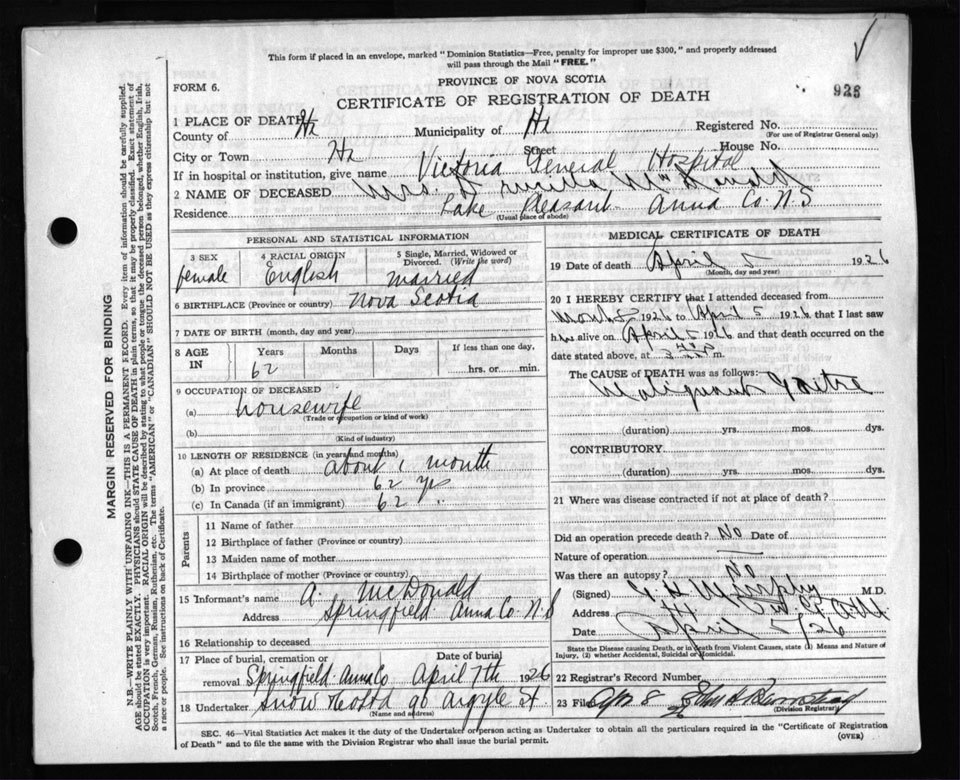 This form if placed in an envelope, marked "Dominion Statistics—Free, penalty for improper use $300," and properly addressed
will pass through the Mail "FREE."
FORM 6.
PROVINCE OF NOVA SCOTIA
CERTIFICATE OF REGISTRATION OF DEATH
925
1 PLACE OF DEATH
County of Hx Municipality of Hx Registered No.
(For use of Registrar General only)
City or Town Hx Street House No.
If in hospital or institution, give name Victoria General Hospital
2 NAME OF DECEASED Mrs. McDonald
Residence Lake Pleasant Anna Co. N.S
(Usual place of abode)
PERSONAL AND STATISTICAL INFORMATION
3 SEX 4 RACIAL ORIGIN 5 Single, Married, Widowed or
Divorced. (Write the word)
female English married
6 BIRTHPLACE (Province or country) Nova Scotia
7 DATE OF BIRTH (month, day and year)
8 AGE IN Years Months Days If less than one day,
62 hrs. or min.
9 OCCUPATION OF DECEASED
(a) housewife
(Trade or occupation or kind of work)
(b)
(Kind of industry)
10 LENGTH OF RESIDENCE (in years and months)
(a) At place of death about 1 month
(b) In province 62 yrs
(c) In Canada (if an immigrant) 62 "
Parents
11 Name of father
12 Birthplace of father (Province or country)
13 Maiden name of mother
14 Birthplace of mother (Province or country)
15 Informant's name A. McDonald
Address Springfield Anna Co. N.S
16 Relationship to deceased
17 Place of burial, cremation or Date of burial
removal Springfield Anna Co April 7th 1926
18 Undertaker Snow & Co Ltd 90 Argyle St.
(Name and address)
MEDICAL CERTIFICATE OF DEATH
19 Date of death April 5 1926
(Month, day and year)
20 I HEREBY CERTIFY that I attended deceased from
March 1926 to April 5 1926 that I last saw
her alive on April 5 1926, and that death occurred on the
date stated above, at m.
The CAUSE of DEATH was as follows:
Malignant Goitre
(duration) yrs. mos. dys.
CONTRIBUTORY
(duration) yrs. mos. dys.
21 Where was disease contracted if not at place of death?
Did an operation precede death? No Date of
Nature of operation
Was there an autopsy? No
(Signed) Murphy M.D.
Address Hx
Date April 5/26
State the Disease causing Death, or in Death from Violent Causes, state (1) Means and Nature of
Injury, (2) whether Accidental, Suicidal or Homicidal.
22 Registrar's Record Number
23 Filed Apr 8
(Division Registrar)
SEC. 46—Vital Statistics Act makes it the duty of the Undertaker or person acting as Undertaker to obtain all the particulars required in the "Certificate of Registration
of Death" and to file the same with the Division Registrar who shall issue the burial permit.
(OVER)
MARGIN RESERVED FOR BINDING
N.B.—WRITE PLAINLY WITH UNFADING INK—THIS IS A PERMANENT RECORD. Every item of information should be carefully supplied.
AGE should be stated EXACTLY. PHYSICIANS should STATE CAUSE OF DEATH in plain terms, so that it may be properly classified. Exact statement of
OCCUPATION is very important. RACIAL ORIGIN will be described by stating to what people or tongue the deceased person belonged, whether English, Irish,
Scotch, French, German, Russian, Ruthenian, etc. The terms "AMERICAN" or "CANADIAN" SHOULD NOT BE USED as they express citizenship but not
a race or people. See instructions on back of Certificate.